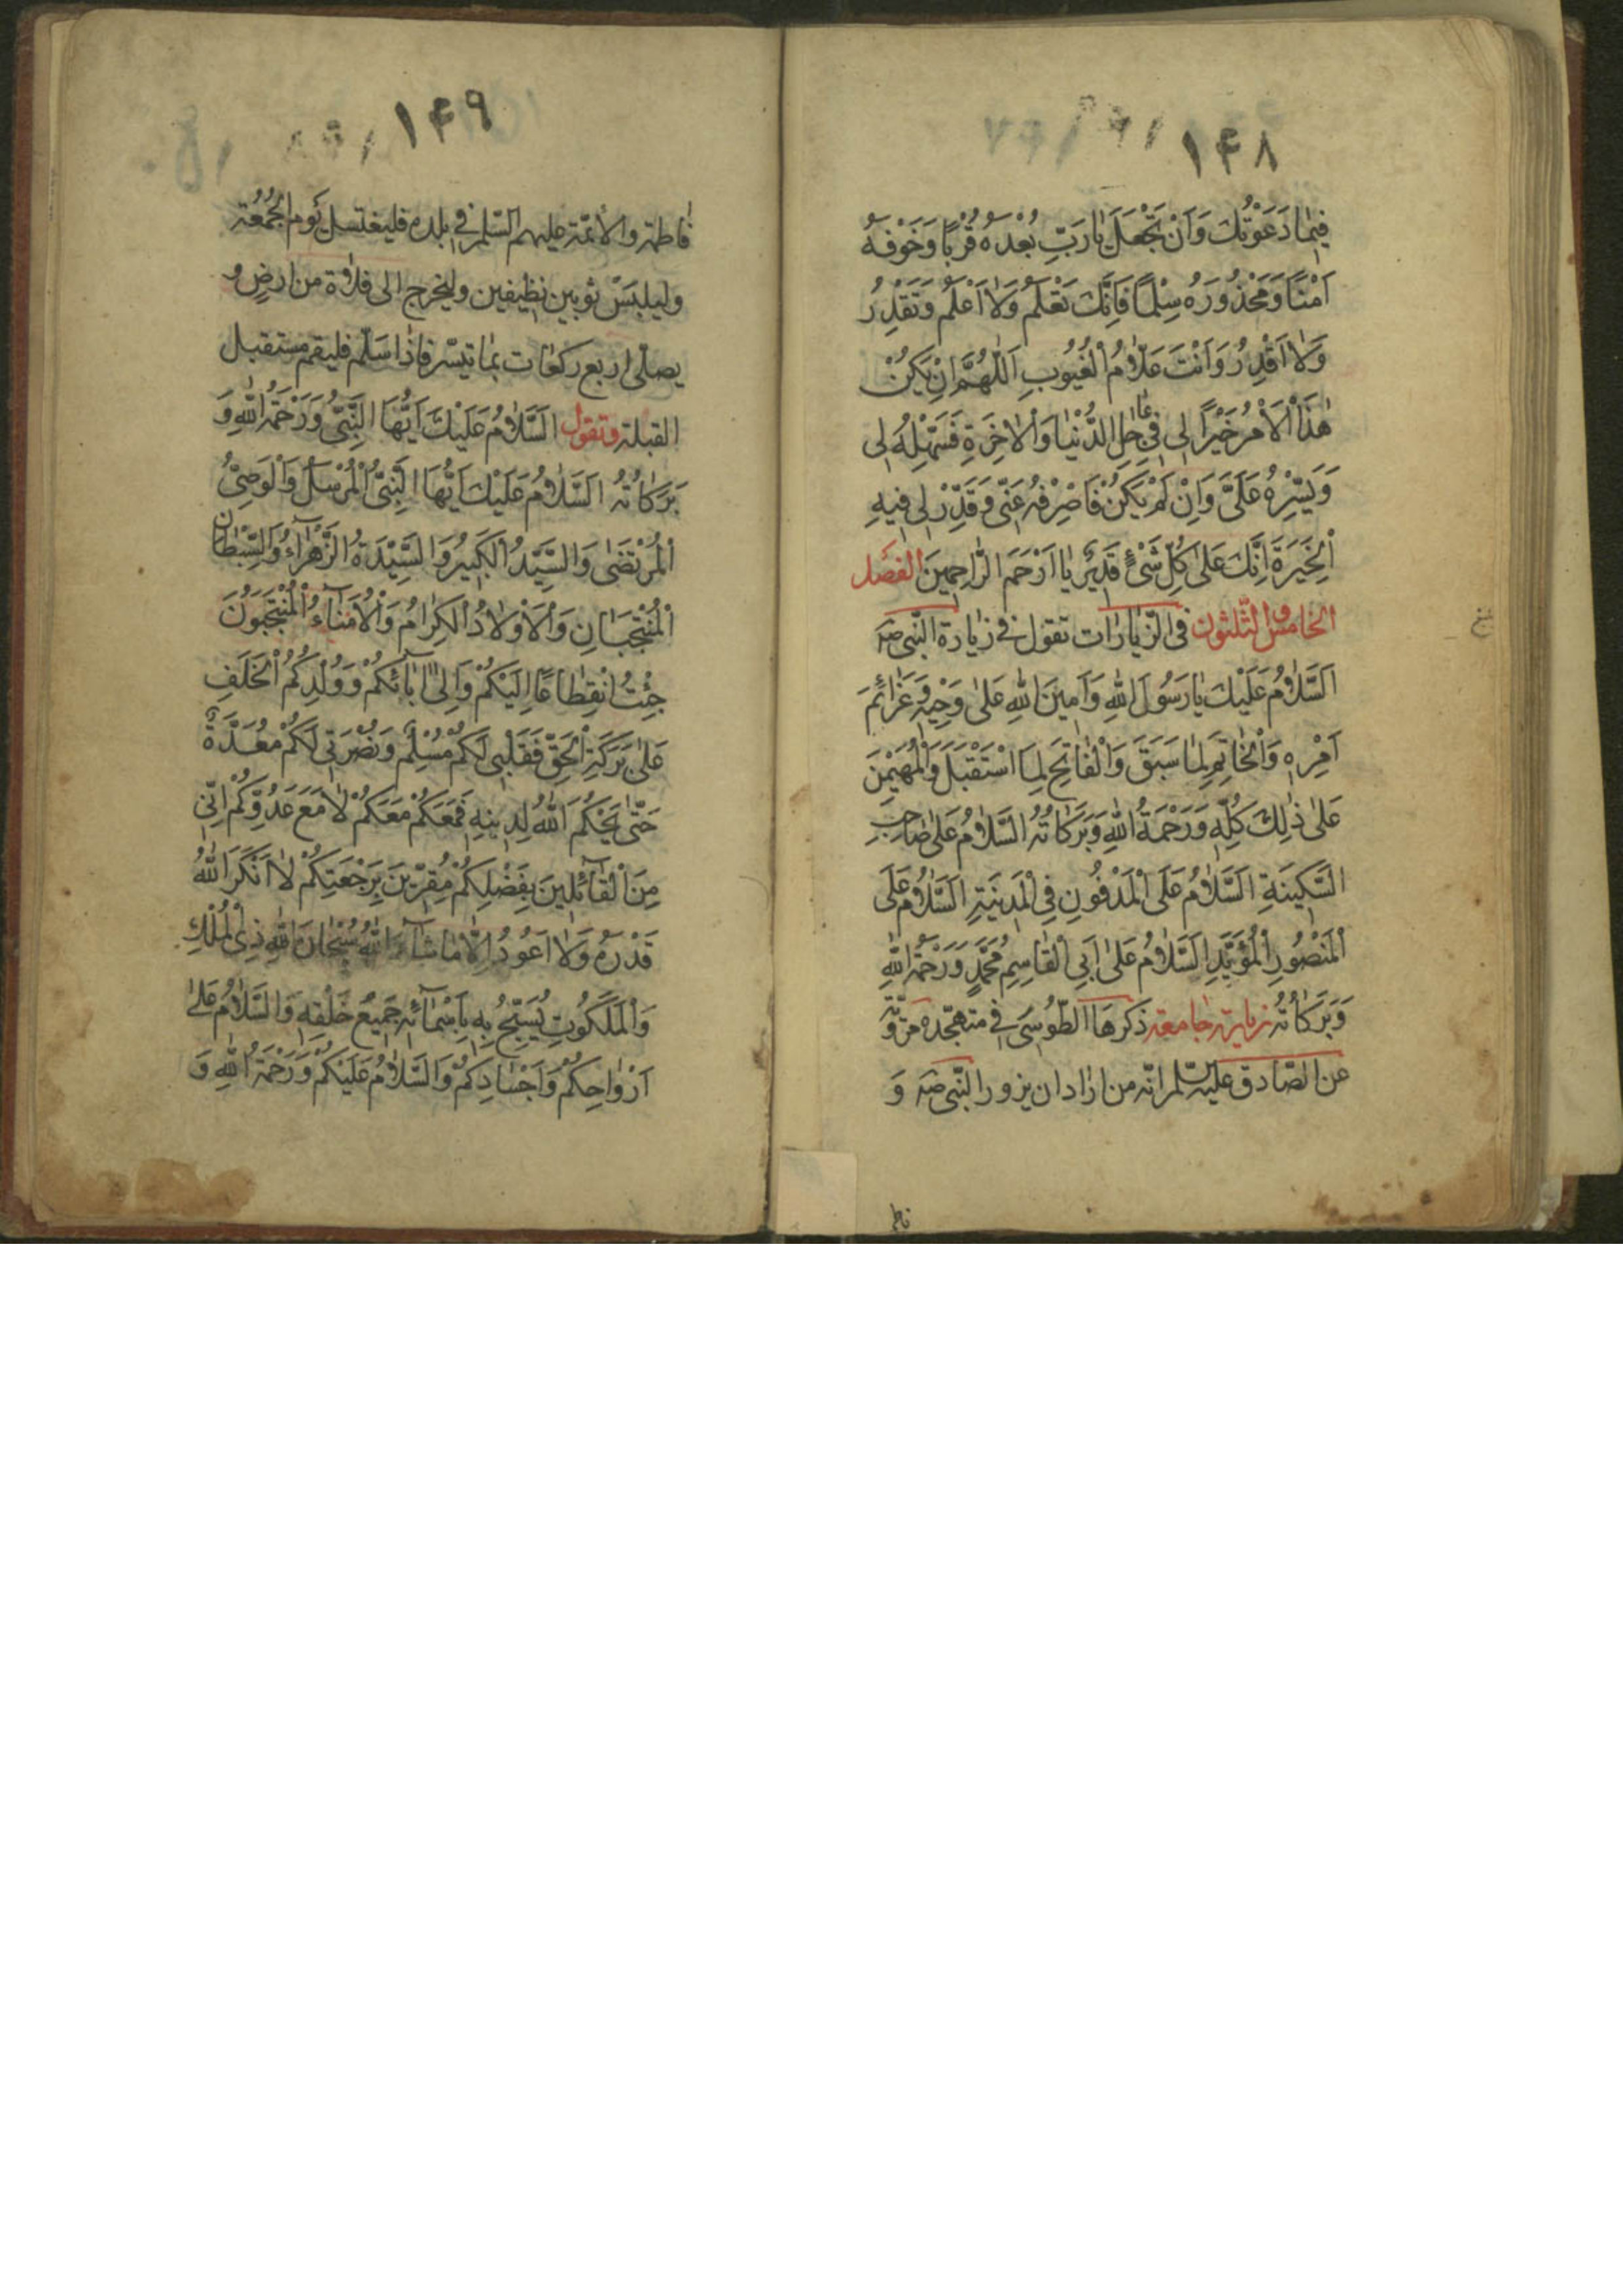 ١٤٨
فِيمٰا دَعَوْتُكَ وَاَنْ تَجْعَلَ يٰا رَبِّ بُعْدَهُ قُرْبًا وَخَوْفَهُ
اَمْنًا وَمَحْذُورَهُ سِلْمًا فَاِنَّكَ تَعْلَمُ وَلٰا اَعْلَمُ وَتَقْدِرُ
وَلٰا اَقْدِرُ وَاَنْتَ عَلّٰامُ الْغُيُوبِ اَللّٰهُمَّ اِنْ يَكُنْ
هٰذَا الْاَمْرُ خَيْرًا لِى فِى عٰاجِلِ الدُّنْيٰا وَالْاٰخِرَةِ فَسَهِّلْهُ لِى
وَيَسِّرْهُ عَلَىَّ وَاِنْ لَمْ يَكُنْ فَاصْرِفْهُ عَنِّى وَقَدِّرْ لِى فِيهِ
الْخِيَرَةَ اِنَّكَ عَلىٰ كُلِّ شَىْءٍ قَدِيرٌ يٰا اَرْحَمَ الرّٰاحِمِينَ الفصل
الخامس والثلثون فى الزيارات تقول فى زيارة النبى صه
اَلسَّلٰامُ عَلَيْكَ يٰا رَسُولَ اللهِ وَاَمِينَ اللهِ عَلىٰ وَحْيِهِ وَعَزٰائِمَ
اَمْرِهِ وَالْخٰاتِمِ لِمٰا سَبَقَ وَالْفٰاتِحِ لِمَا اسْتَقْبَلَ وَالْمُهَيْمِنَ
عَلىٰ ذٰلِكَ كُلِّهِ وَرَحْمَةُ اللهِ وَبَرَكٰاتُهُ السَّلٰامُ عَلىٰ صٰاحِبِ
السَّكِينَةِ اَلسَّلٰامُ عَلَى الْمَدْفُونِ فِى الْمَدِينَةِ اَلسَّلٰامُ عَلَى
الْمَنْصُورِ الْمُؤَيَّدِ اَلسَّلٰامُ عَلىٰ اَبِى الْقٰاسِمِ مُحَمَّدٍ وَرَحْمَةُ اللهِ
وَبَرَكٰاتُهُ زيارة جامعة ذكرها الطّوسى فى متهجّده مرويّة
عن الصّادق عليه السّلم انّه من اراد ان يزور النّبى صه و
فاطمـ
١٤٩
فاطمة والائمّة عليهم السّلم فى بلده فليغتسل يَوم الجُمُعَة
وليلبَسْ ثوبين نظيفين وليخرج الى فلاة من ارضٍ و
يصلّى اربع ركعات بما تيسّر فاذا سلّم فليقم مستقبل
القبلة وتقول اَلسَّلٰامُ عَلَيْكَ اَيُّهَا النَّبِىُّ وَرَحْمَةُ اللهِ وَ
بَرَكٰاتُهُ اَلسَّلٰامُ عَلَيْكَ اَيُّهَا النَّبِىُّ الْمُرْسَلُ وَالْوَصِىُّ
الْمُرْتَضٰى وَالسَّيِّدُ الْكَبِيرُ وَالسَّيِّدَةُ الزَّهْرٰآءُ وَالسِّبْطٰانِ
الْمُنْتَجَبٰانِ وَالْاَوْلٰادُ الْكِرٰامُ وَالْاُمَنٰآءُ الْمُنْتَجَبُونَ
جِئْتُ انْقِطٰاعًا اِلَيْكُمْ وَاِلىٰ اٰبٰائِكُمْ وَوُلْدِكُمُ الْخَلَفِ
عَلىٰ بَرَكَةِ الْحَقِّ فَقَلْبِى لَكُمْ مُسْلِمٌ وَنُصْرَتِى لَكُمْ مُعَدَّةٌ
حَتّٰى يَحْكُمَ اللهُ لِدِينِهِ فَمَعَكُمْ مَعَكُمْ لٰا مَعَ عَدُوِّكُمْ اِنِّى
مِنَ الْقٰآئِلِينَ بِفَضْلِكُمْ مُقِرِّينَ بِرَجْعَتِكُمْ لٰا اُنْكِرُ اللهَ
قَدْرَهُ وَلٰا اَعُودُ اِلّٰا مٰا شٰآءَ اللهُ سُبْحٰانَ اللهِ ذِى الْمُلْكِ
وَالْمَلَكُوتِ يُسَبِّحُ بِهِ بِاَسْمٰآئِهِ جَمِيعُ خَلْقِهِ وَالسَّلٰامُ عَلىٰ
اَرْوٰاحِكُمْ وَاَجْسٰادِكُمْ وَالسَّلٰامُ عَلَيْكُمْ وَرَحْمَةُ اللهِ وَ